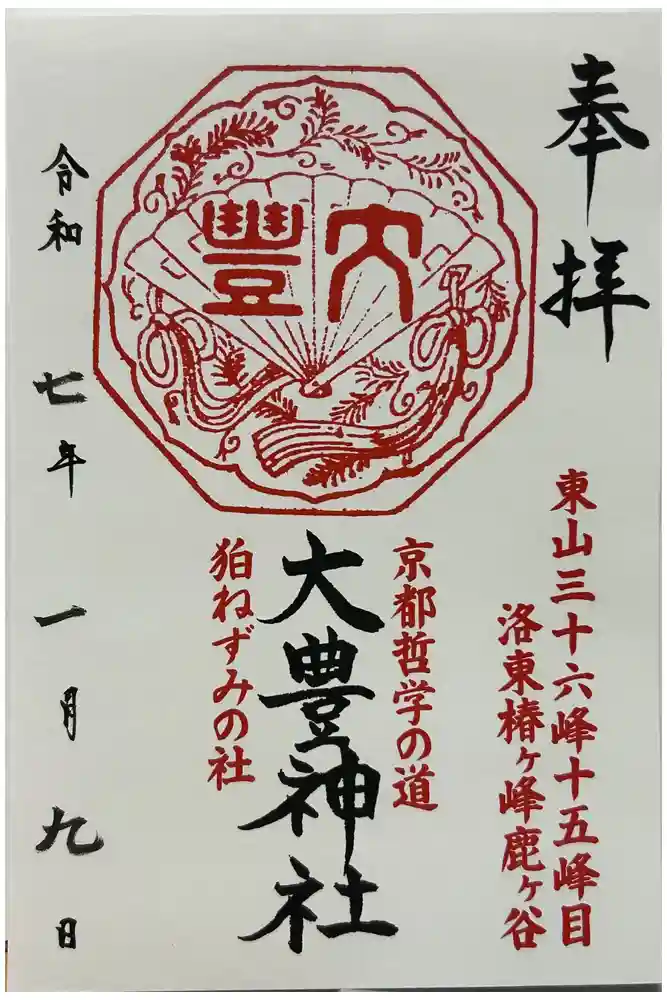 奉拝
東山三十六峰十五峰目
洛東椿ヶ峰鹿ヶ谷
大豐
京都哲学の道
大豊神社
狛ねずみの社
令和七年一月九日